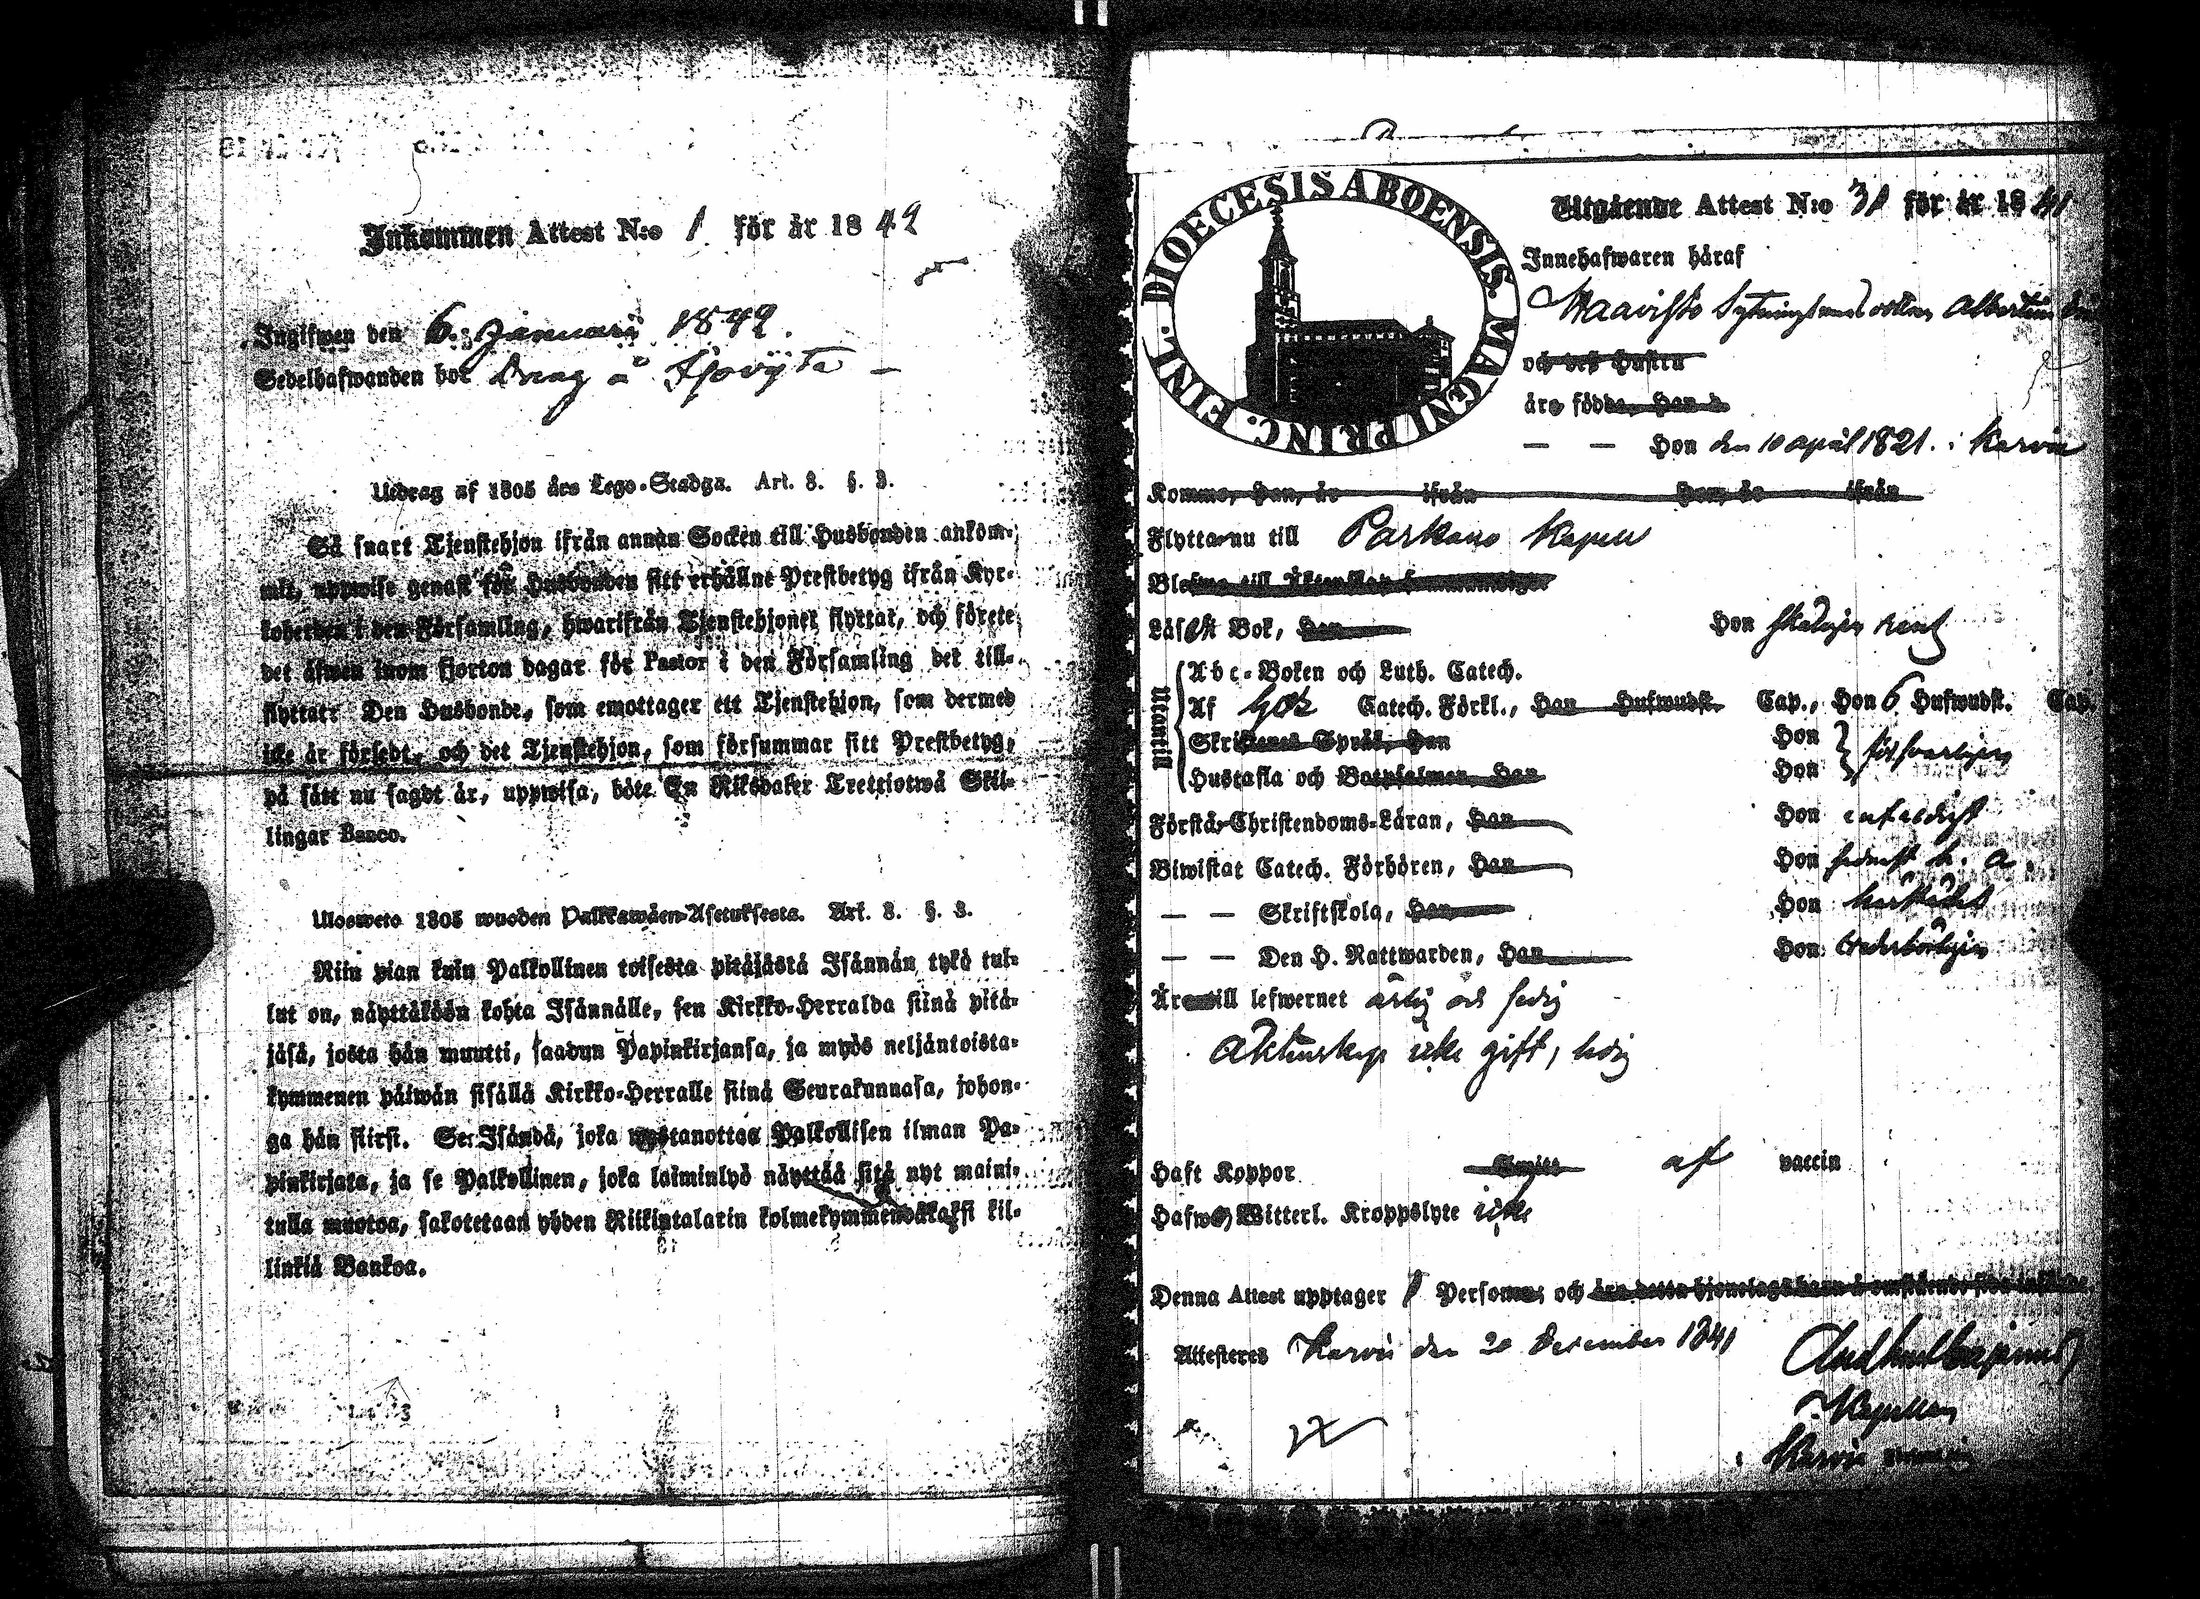 Inkommen Attest N:o 1 för år 1842
Ingifwen den 6. Januarii 1842.
Sedelhafwanden bor
Utdrag af 1805 års Lego-Stadga. Art. 8. §. 3.
Så snart Tjenstehjon ifrån annan Socken till Husbonden ankom-
mit, uppwise genast för Husbonden sitt erhållne Prestbetyg ifrån Kyr-
koherden i den Församling, hwarifrån Tjenstehjonet flyttat, och förete
det äfwen inom fjorton dagar för Pastor i den Församling det till-
flyttat: Den Husbonde, som emottager ett Tjenstehjon, som dermed
icke är försedt, och det Tjenstehjon, som försummar sitt Prestbetyg,
på sätt nu sagdt är, uppwisa, böte En Riksdaler Trettiotwå Skil-
lingar Banco.
Ulosweto 1805 wuoden Palkkawäen-Asetuksesta. Art. 8. §. 3.
Niin pian kuin Palkollinen toisesta pitäjästä Isännän tykö tul-
lut on, näyttäköön kohta Isännälle, sen Kirkko-Herralda siinä pitä-
jäsä, josta hän muutti, saadun Papinkirjansa, ja myös neljäntoista-
kymmenen päiwän sisällä Kirkko-Herralle siinä Seurakunnasa, johon-
ga hän siirsi. Se Isändä, joka wastanottaa Palkollisen ilman Pa-
pinkirjata, ja se Palkollinen, joka laiminlyö näyttää sitä nyt maini-
tulla muotoa, sakotetaan yhden Riikintalarin kolmekymmendäkaksi kil-
linkiä Bankoa.
DIOECESIS ABOENSIS. MAGNI PRINC. FINL.
Utgående Attest N:o 31 för år 1841
Innehafwaren häraf
Haavisto Albertina
och dess Hustru
äro födde, Han d.
— — Hon den 10 april 1821. i Karvia
Komme, Han, år ifrån Hon, år ifrån
Flytta nu till Parkano Kapell
Läser i Bok, Han Hon
Utantill
Abc-Boken och Luth. Catech.
Af Catech. Förkl., Han Hufwudst. Cap., Hon 6 Hufwudst. Cap.
Skriftenes Språk, Han Hon
Hustafla och Botpsalmen, Han Hon försvarligen
Förstår Christendoms-Läran, Han Hon enfaldigt
Biwistat Catech. Förhören, Han Hon
— — Skriftskola, Han Hon
— — Den H. Nattwarden, Han Hon wederbörligen
Är till lefwernet ärlig och sedig
Äktenskap icke gift, ledig
Haft Koppor Smitt af vaccin
Hafwer Witterl. Kroppslyte icke
Denna Attest upptager 1 Person och
Attesteres Karvia den 20 December 1841
Kapellan
i Karvia